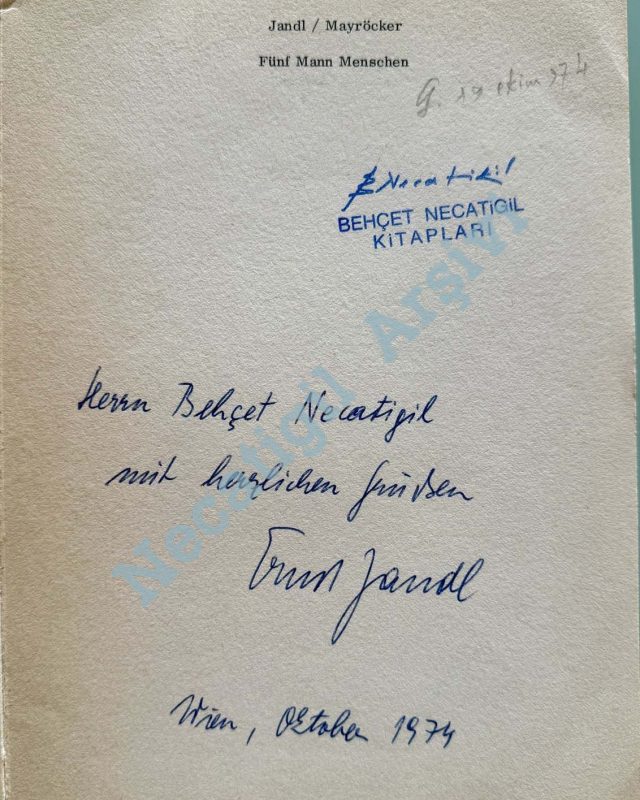 Jandl / Mayröcker
Fünf Mann Menschen
G. 19 ekim 974
B Necatigil
BEHÇET NECATİGİL
KİTAPLARI
Necatigil Arşivi
Herrn Behçet Necatigil
mit herzlichen Grüßen
Ernst Jandl
Wien, Oktober 1974